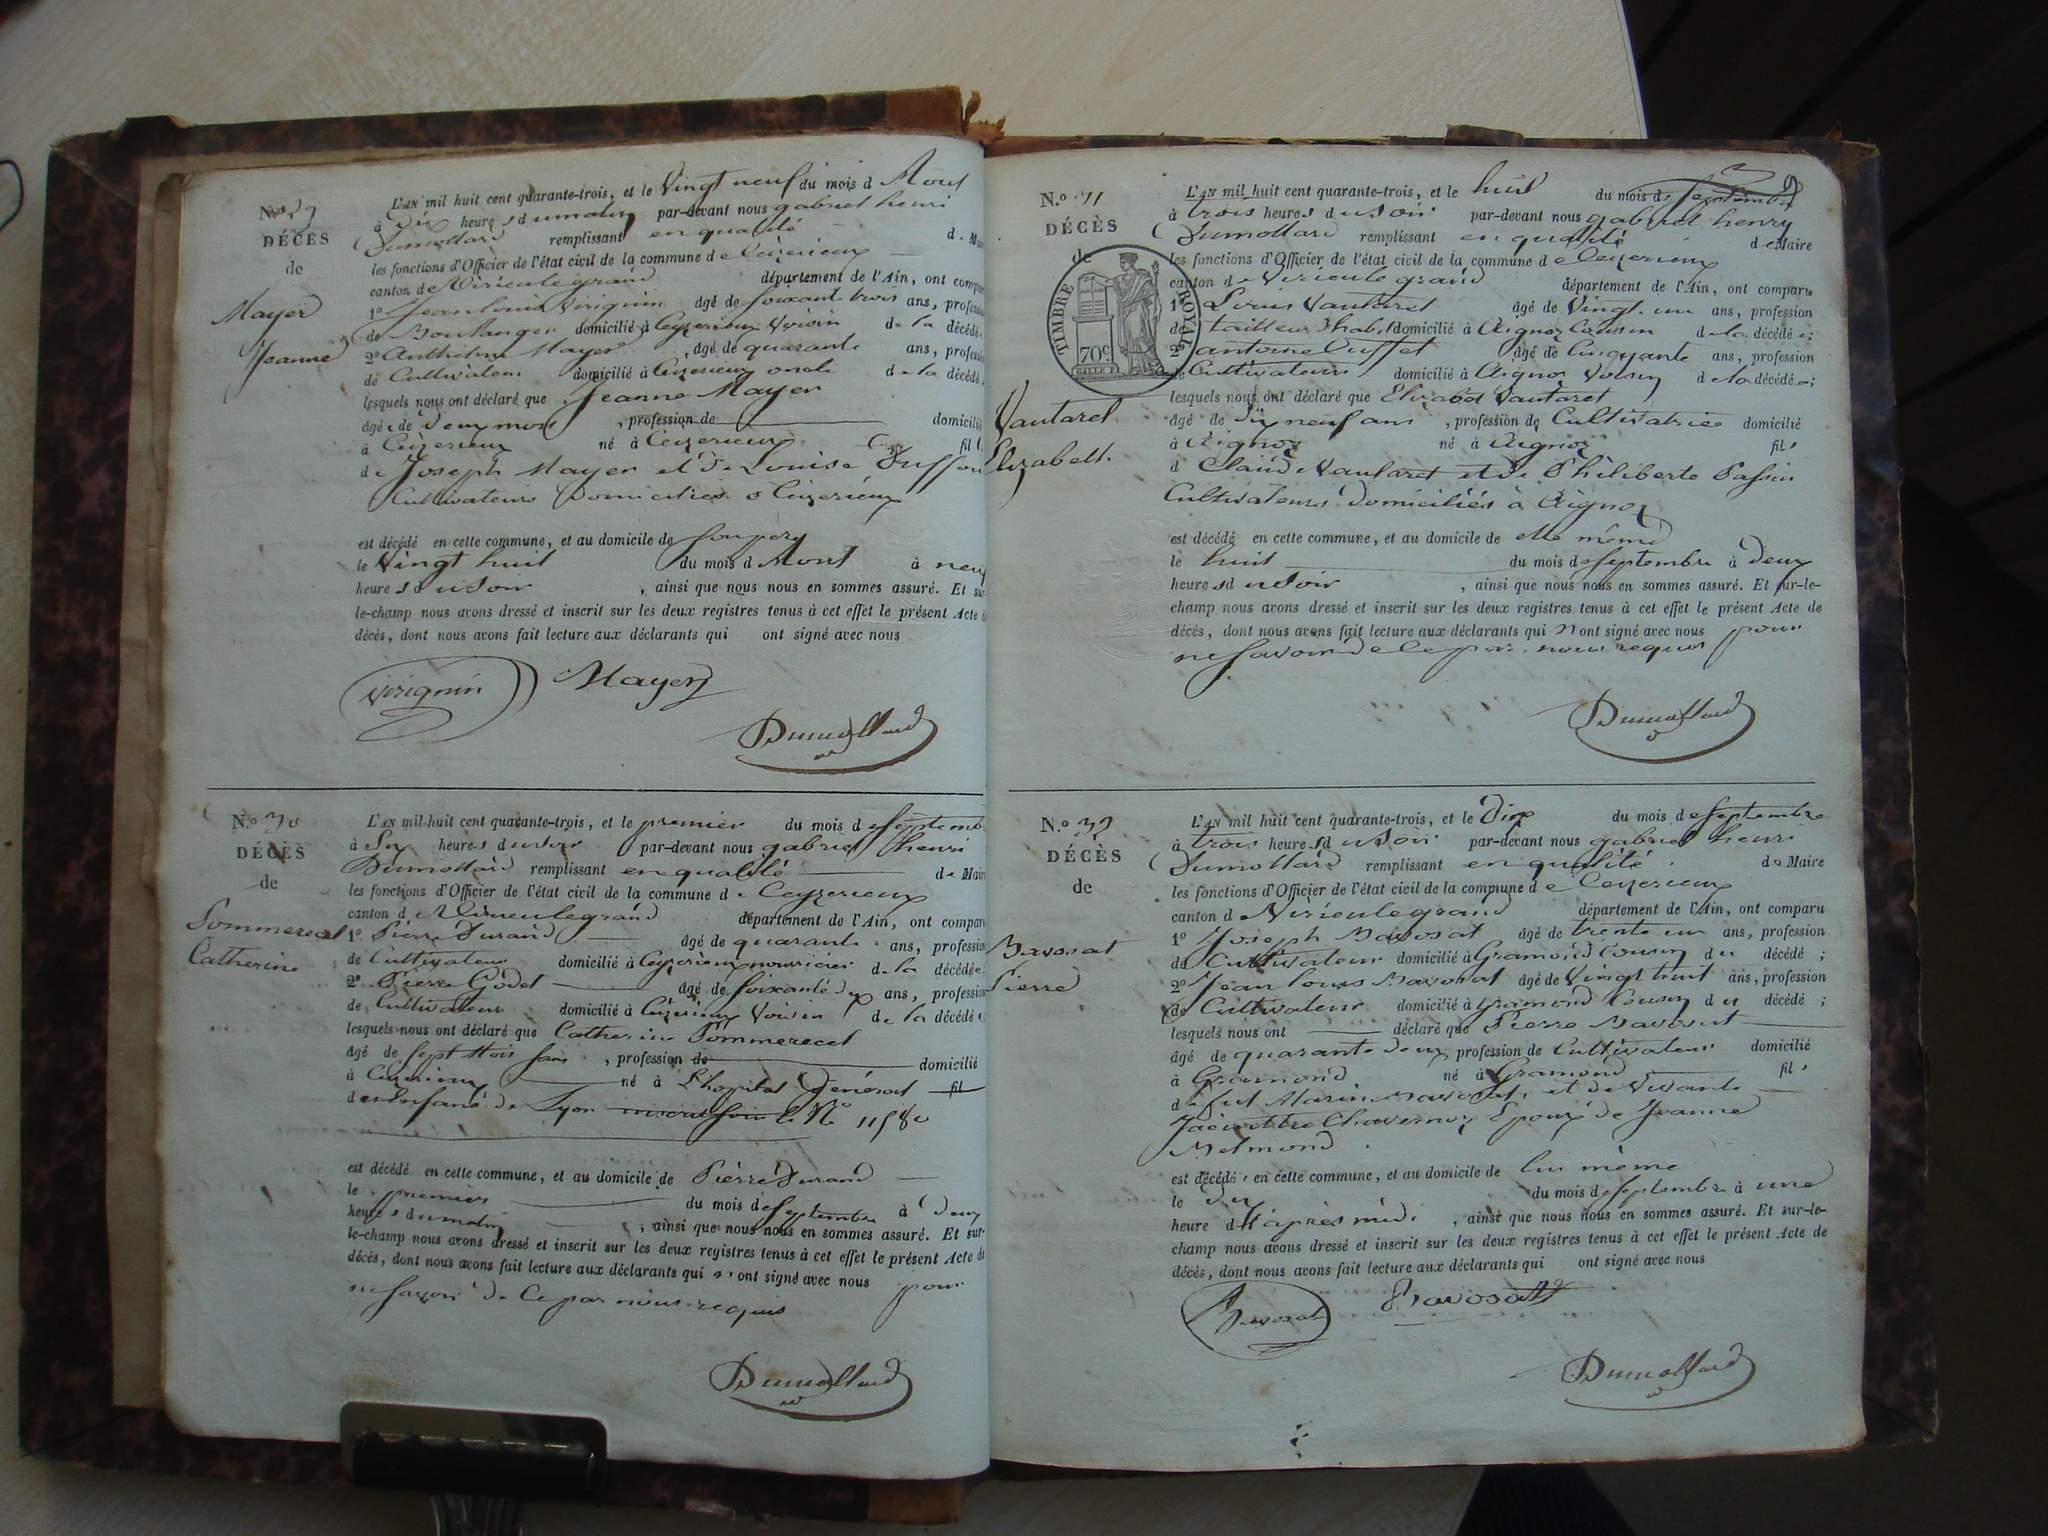 N.º 29
DÉCÈS
de
Mayer
Jeanne
L'AN mil huit cent quarante-trois, et le Vingt neuf du mois d Aout
à Dix heures du matin par-devant nous gabriel henri
Dumollard remplissant en qualité de Mai
les fonctions d'Officier de l'état civil de la commune de Ceyzerieux
canton de Virieulegrand département de l'Ain, ont compar
1º Jean louis Virignin âgé de soixant trois ans, profession
de Boulanger domicilié à Ceyzerieux Voisin de la décédé
2º Anthelme Mayer âgé de quarante ans, profession
de Cultivateur domicilié à Ceyzerieux oncle de la décédé
lesquels nous ont déclaré que Jeanne Mayer
âgé de deux mois, profession de domicilié
à Ceyzerieux né à Ceyzerieux fil
de Joseph Mayer et de Louise
Cultivateurs Domiciliés à Ceyzérieux
est décédé en cette commune, et au domicile de son pere
le Vingt huit du mois d Aout à neuf
heures du soir, ainsi que nous nous en sommes assuré. Et sur-
le-champ nous avons dressé et inscrit sur les deux registres tenus à cet effet le présent Acte de
décès, dont nous avons fait lecture aux déclarants qui ont signé avec nous
Virignin Mayer
Dumollard
N.º 30
DÉCÈS
de
Pommerecel
Catherine
L'AN mil huit cent quarante-trois, et le premier du mois de Septemb
à Six heures du soir par-devant nous gabriel henri
Dumollard remplissant en qualité de Maire
les fonctions d'Officier de l'état civil de la commune de Ceyzerieux
canton de Virieulegrand département de l'Ain, ont comparu
1º Pierre Durand âgé de quarante ans, profession
de Cultivateur domicilié à Ceyzerieux nourricier de la décédée
2º Pierre Godet âgé de soixante dix ans, profession
de Cultivateur domicilié à Ceyzerieux Voisin de la décédé
lesquels nous ont déclaré que Catherine Pommerecel
âgé de sept Mois, profession de domicilié
à Ceyzerieux né à L'hopital général fil
des Enfans de Lyon inscrit sous le Nº 11580
est décédé en cette commune, et au domicile de Pierre Durand
le premier du mois de Septembre à Deux
heures du matin, ainsi que nous nous en sommes assuré. Et sur-
le-champ nous avons dressé et inscrit sur les deux registres tenus à cet effet le présent Acte de
décès, dont nous avons fait lecture aux déclarants qui n'ont signé avec nous pour
ne savoir de ce par nous requis
Dumollard
N.º 31
DÉCÈS
de
TIMBRE ROYAL
70 c.
Vautaret
Elizabett
L'AN mil huit cent quarante-trois, et le huit du mois de Septembre
à trois heures du soir par-devant nous gabriel henry
Dumollard remplissant en qualité de Maire
les fonctions d'Officier de l'état civil de la commune de Ceyzerieux
canton de Virieule grand département de l'Ain, ont comparu
1º Louis Vautaret âgé de Vingt un ans, profession
de tailleur d'habit domicilié à Aignoz Cousin de la décédée;
2º antoine âgé de Cinquante ans, profession
de Cultivateur domicilié à Aignoz Voisin de la décédée;
lesquels nous ont déclaré que Elizabet Vautaret
âgé de Dix neuf ans, profession de Cultivatrice domicilié
à Aignoz né à Aignoz fil
d Claude Vautaret et de Philiberte Passin
Cultivateurs Domiciliés à Aignoz
est décédé en cette commune, et au domicile de elle même
le huit du mois de Septembre à Deux
heures du soir, ainsi que nous nous en sommes assuré. Et sur-le-
champ nous avons dressé et inscrit sur les deux registres tenus à cet effet le présent Acte de
décès, dont nous avons fait lecture aux déclarants qui n'ont signé avec nous pour
ne savoir de ce par nous requis
Dumollard
N.º 32
DÉCÈS
de
Bavosat
Pierre
L'AN mil huit cent quarante-trois, et le Dix du mois de Septembre
à trois heures du soir par-devant nous gabriel henri
Dumollard remplissant en qualité de Maire
les fonctions d'Officier de l'état civil de la commune de Ceyzerieux
canton d Virieulegrand département de l'Ain, ont comparu
1º Joseph Bavosat âgé de trente un ans, profession
de Cultivateur domicilié à Gramond Cousin du décédé;
2º Jean louis Bavosat âgé de Vingt huit ans, profession
de Cultivateur domicilié à Gramond Cousin du décédé;
lesquels nous ont déclaré que Pierre Bavosat
âgé de quarante deux profession de Cultivateur domicilié
à Gramond né à Gramond fils
de fut Marin Bavosat, et de Vivante
Jacinthe Chavernoz Epoux de Jeanne
Melmond
est décédé en cette commune, et au domicile de lui même
le dix du mois de Septembre à une
heure d l'après midi, ainsi que nous nous en sommes assuré. Et sur-le-
champ nous avons dressé et inscrit sur les deux registres tenus à cet effet le présent Acte de
décès, dont nous avons fait lecture aux déclarants qui ont signé avec nous
Bavosat Bavosat
Dumollard